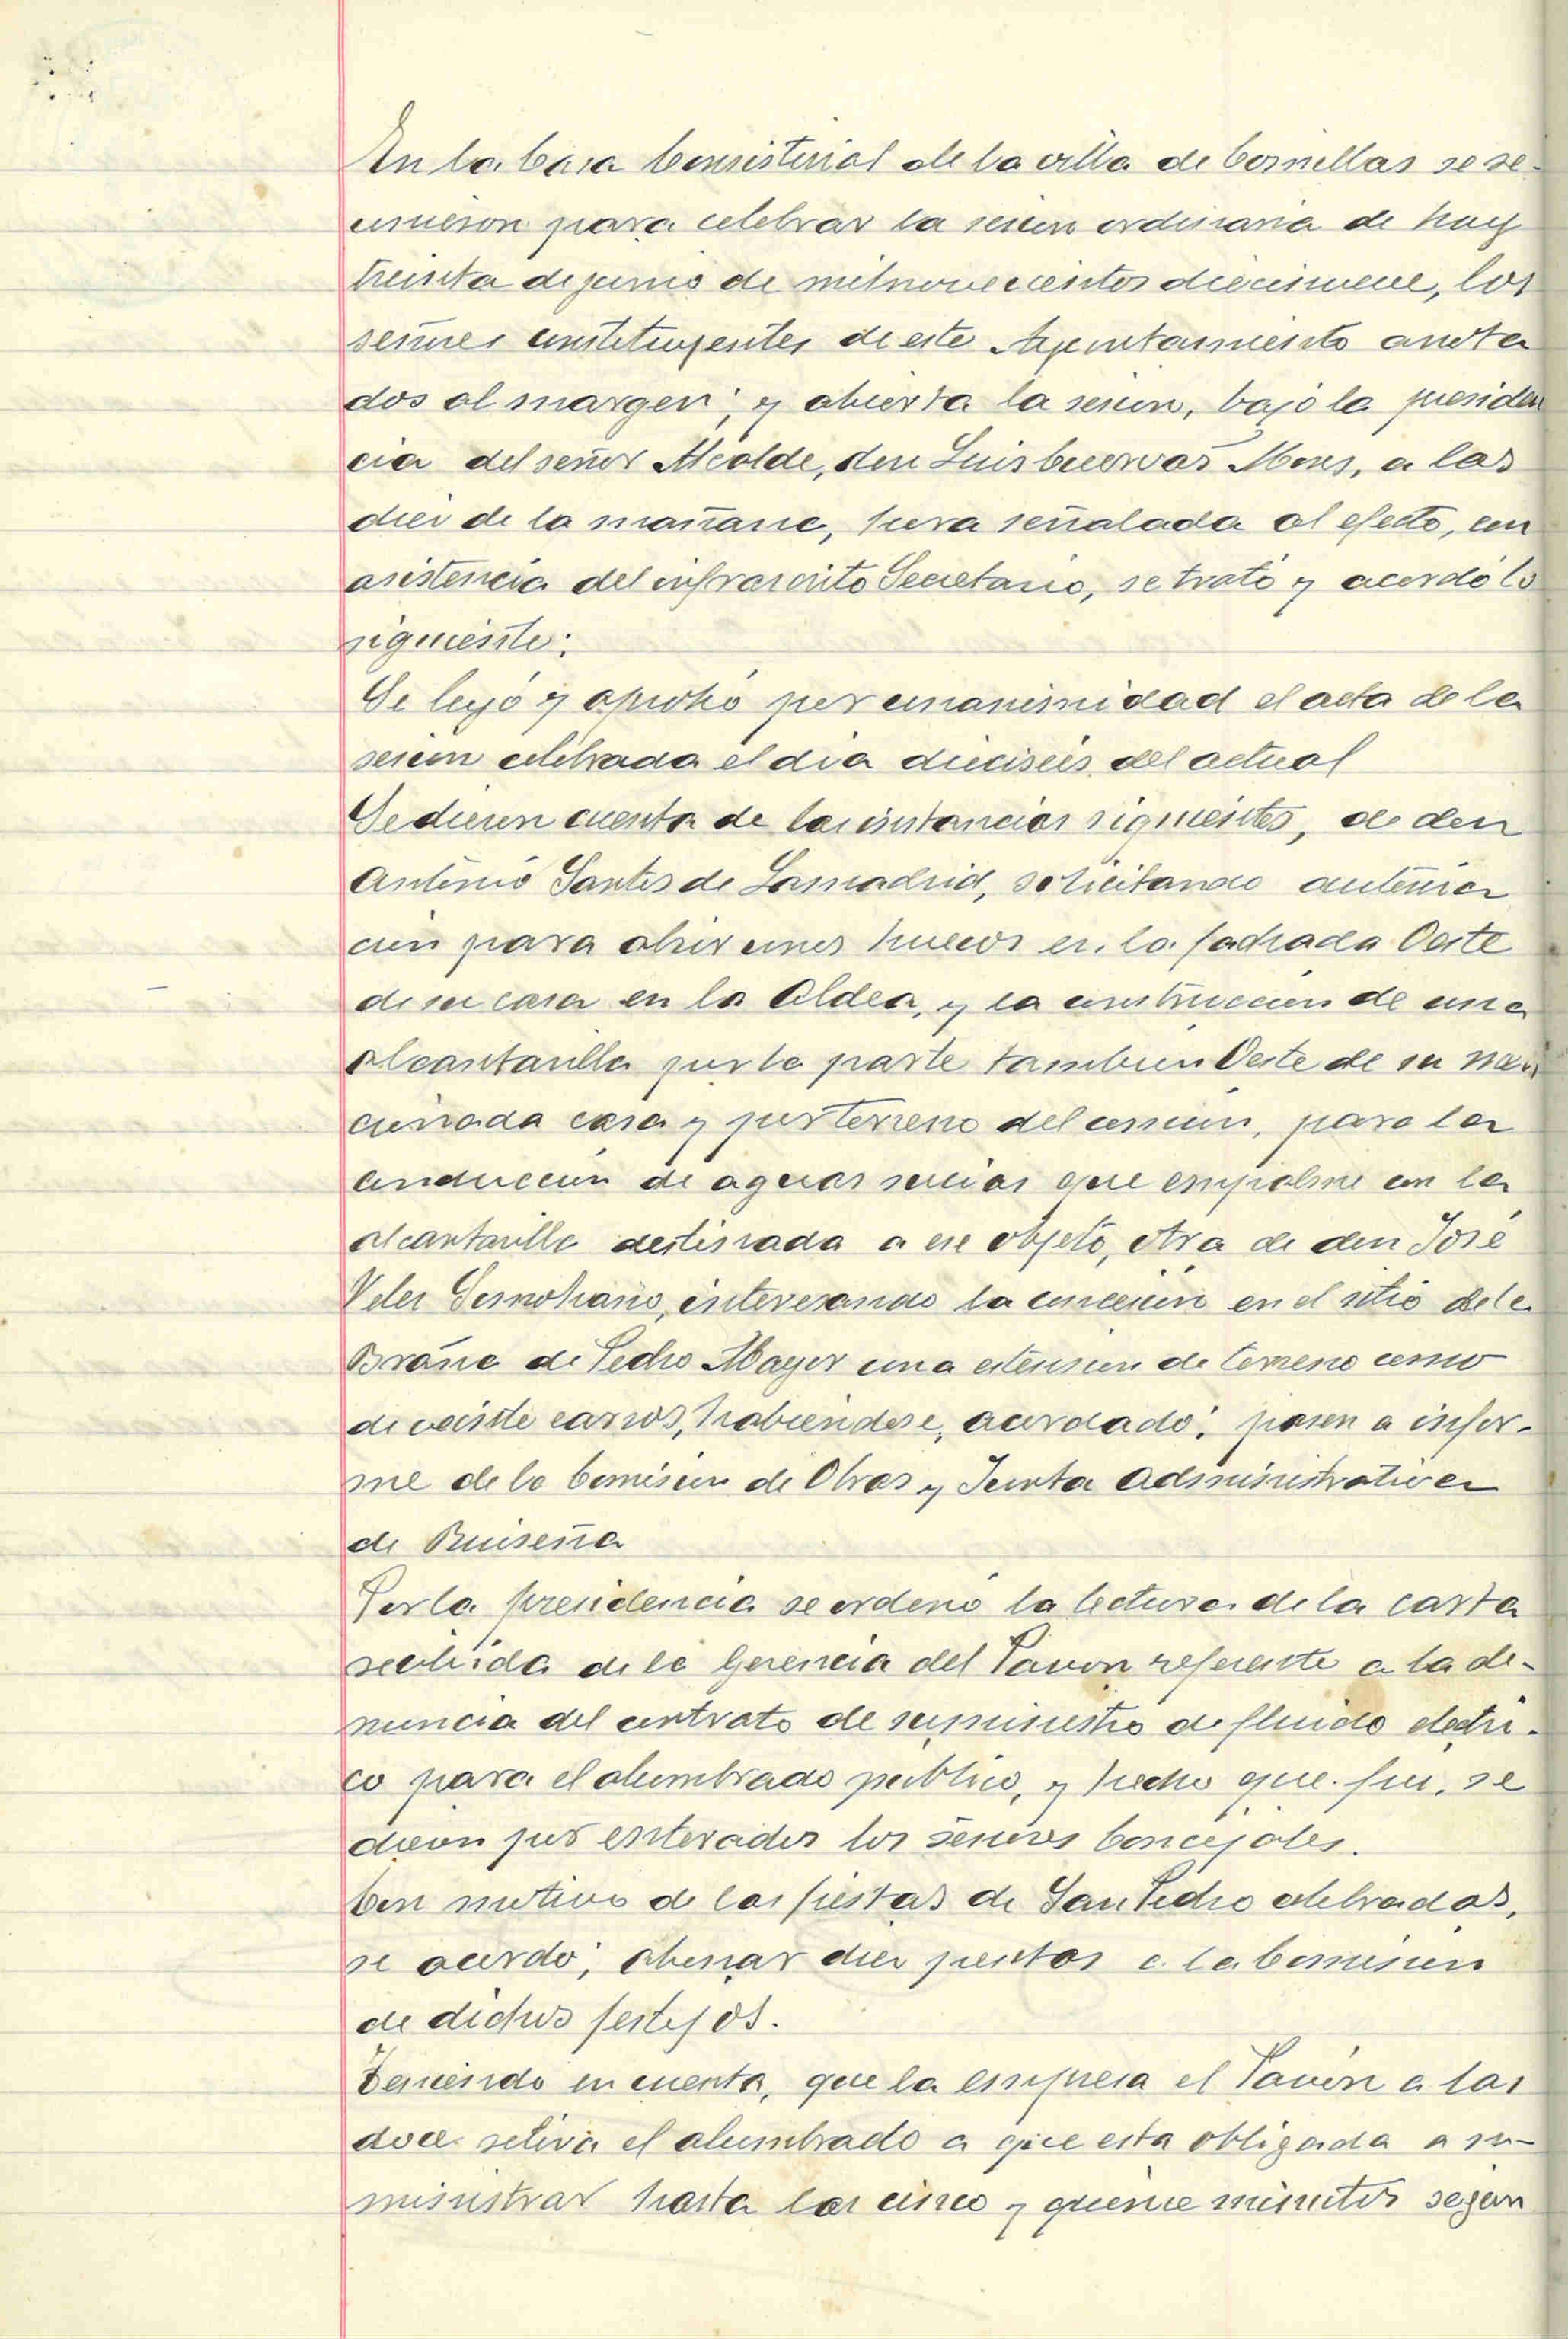 En la Casa Consistorial de la villa de Comillas se re-
unieron para celebrar la sesion ordinaria de hoy
treinta de junio de mil novecientos diecinueve, los
señores constituyentes de este Ayuntamiento anota
dos al margen; y abierta la sesion, bajo la presiden
cia del señor Alcalde, don Luis Cuervas Mons, a las
diez de la mañana, hora señalada al efecto, con
asistencia del infrascrito Secretario, se trató y acordó lo
siguiente:
Se leyó y aprobó por unanimidad el acta de la
sesion celebrada el dia dieciseis del actual
Se dieron cuenta de las instancias siguientes, de don
Antonio Santos de Lamadrid, solicitando autoriza
cion para abrir unos huecos en la fachada Oeste
de su casa en la Aldea, y la construccion de una
alcantarilla por la parte tambien Oeste de su men
cionada casa y por terreno del comun, para la
conduccion de aguas sucias que empalme con la
alcantarilla destinada a ese objeto, otra de don José
Velez, interesando la concesion en el sitio de la
Braña de Pedro Mayor una estension de terreno como
de veinte carros, habiendose, acordado; pasen a infor-
me de la Comision de Obras y Junta Administrativa
de Ruiseña
Por la presidencia se ordenó la lectura de la carta
recibida de la Gerencia del Pavon referente a la de-
nuncia del contrato de suministro de fluido electri-
co para el alumbrado publico, y hecho que fue, se
dieron por enterados los señores Concejales.
Con motivo de las fiestas de San Pedro celebradas,
se acordó; abonar diez pesetas a la Comision
de dichos festejos.
Teniendo en cuenta, que la empresa el Pavón a las
doce retira el alumbrado a que esta obligada a su-
ministrar hasta las cinco y quince minutos segun